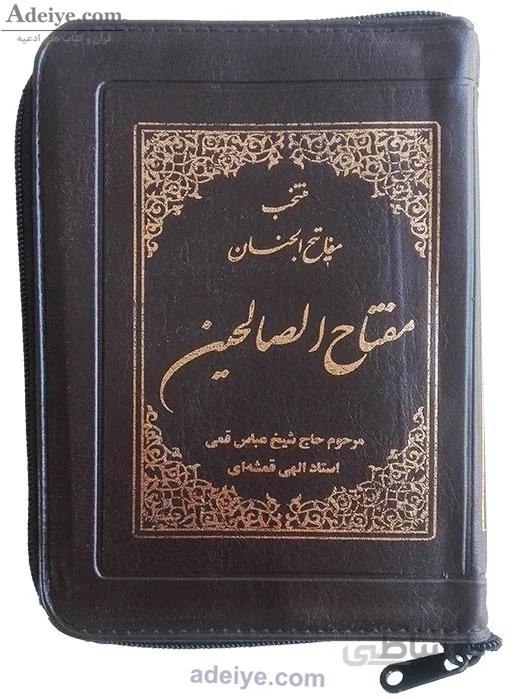 Adeiye.com
قرآن و کتاب های ادعیه
منتخب
مفاتیح الجنان
مفتاح الصالحین
مرحوم حاج شیخ عباس قمی
استاد الهی قمشه‌ای
adeiye.com